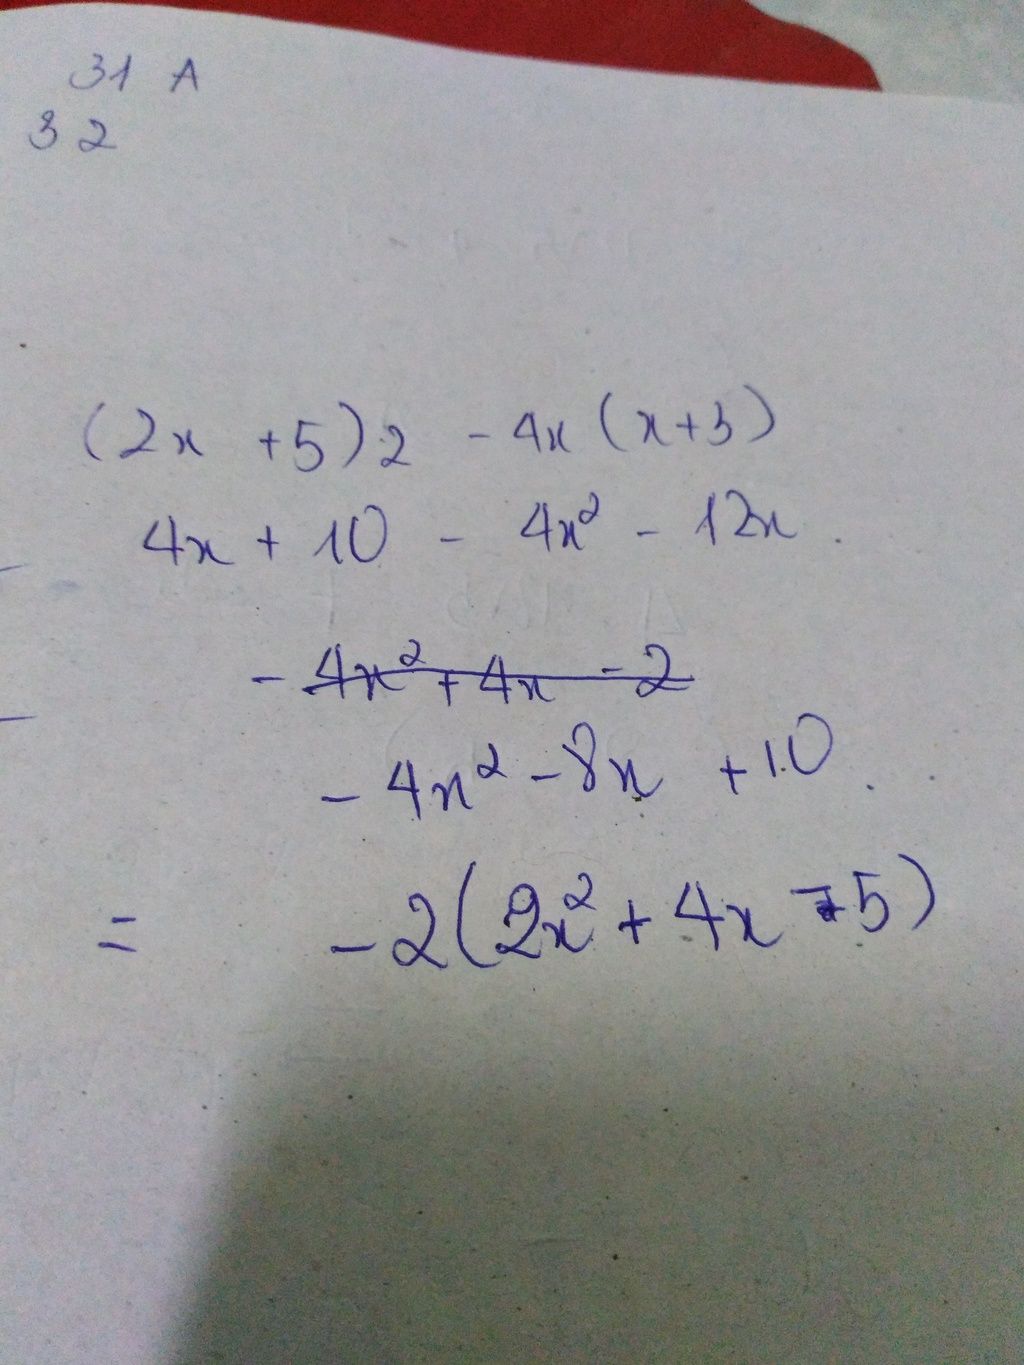 31 A
32
(2x +5)2 - 4x (x+3)
4x + 10 - 4x² - 12x.
- 4x² + 4x - 2
- 4x² - 8x + 10.
= - 2(2x² + 4x - 5)